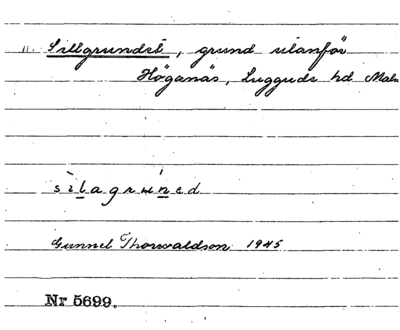 11. Sillgrundet, grund utanför
Höganäs, Luggude hd Malm
sìlagrúnəd
Gunnel Thorwaldson 1945
Nr 5699.